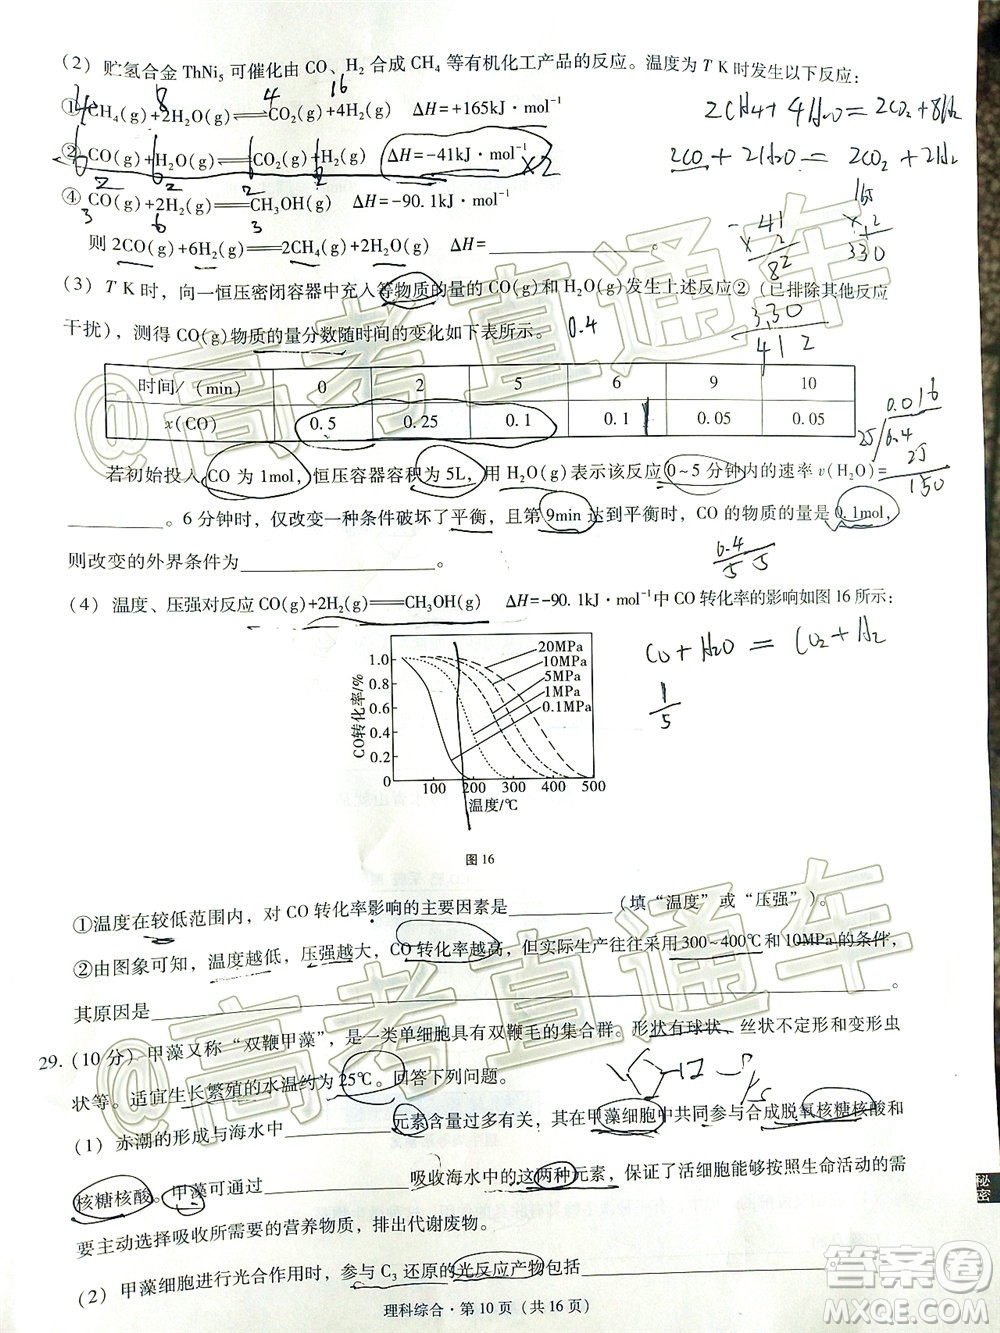 (2) 贮氢合金 ThNi₅ 可催化由 CO、H₂ 合成 CH₄ 等有机化工产品的反应。温度为 T K 时发生以下反应:
4 8 4 16
① CH₄(g)+2H₂O(g)⇌CO₂(g)+4H₂(g) ΔH=+165kJ·mol⁻¹
2CH₄+4H₂O=2CO₂+8H₂
② CO(g)+H₂O(g)⇌CO₂(g)+H₂(g) ΔH=-41kJ·mol⁻¹ ×2
2CO+2H₂O=2CO₂+2H₂
④ CO(g)+2H₂(g)⇌CH₃OH(g) ΔH=-90.1kJ·mol⁻¹
3 6 3
则 2CO(g)+6H₂(g)══2CH₄(g)+2H₂O(g) ΔH=________。
-41
×2
82
165
×2
330
(3) T K 时,向一恒压密闭容器中充入等物质的量的 CO(g)和 H₂O(g)发生上述反应②(已排除其他反应
干扰),测得 CO(g)物质的量分数随时间的变化如下表所示。 0.4
330
412
时间/(min) 0 2 5 6 9 10
x(CO) 0.5 0.25 0.1 0.1 0.05 0.05
0.016
25 0.4
25
150
若初始投入 CO 为 1mol,恒压容器容积为 5L,用 H₂O(g)表示该反应 0~5 分钟内的速率 v(H₂O)=
________。6 分钟时,仅改变一种条件破坏了平衡,且第 9min 达到平衡时,CO 的物质的量是 0.1mol,
则改变的外界条件为________。
0.4
5 5
(4) 温度、压强对反应 CO(g)+2H₂(g)══CH₃OH(g) ΔH=-90.1kJ·mol⁻¹中 CO 转化率的影响如图 16 所示:
CO+H₂O=CO₂+H₂
1
5
CO转化率/%
1.0
0.8
0.6
0.4
0.2
0
20MPa
10MPa
5MPa
1MPa
0.1MPa
100 200 300 400 500
温度/℃
图 16
①温度在较低范围内,对 CO 转化率影响的主要因素是________(填“温度”或“压强”)。
②由图象可知,温度越低,压强越大,CO 转化率越高,但实际生产往往采用 300~400℃和 10MPa 的条件,
其原因是________。
29. (10 分) 甲藻又称“双鞭甲藻”,是一类单细胞具有双鞭毛的集合群。形状有球状、丝状不定形和变形虫
状等。适宜生长繁殖的水温约为 25℃。回答下列问题。
(1) 赤潮的形成与海水中________元素含量过多有关,其在甲藻细胞中共同参与合成脱氧核糖核酸和
核糖核酸。甲藻可通过________吸收海水中的这两种元素,保证了活细胞能够按照生命活动的需
要主动选择吸收所需要的营养物质,排出代谢废物。
(2) 甲藻细胞进行光合作用时,参与 C₃ 还原的光反应产物包括________
理科综合·第 10 页(共 16 页)
@高考直通车
@高考直通车
秘密
答案圈
MXQE.COM